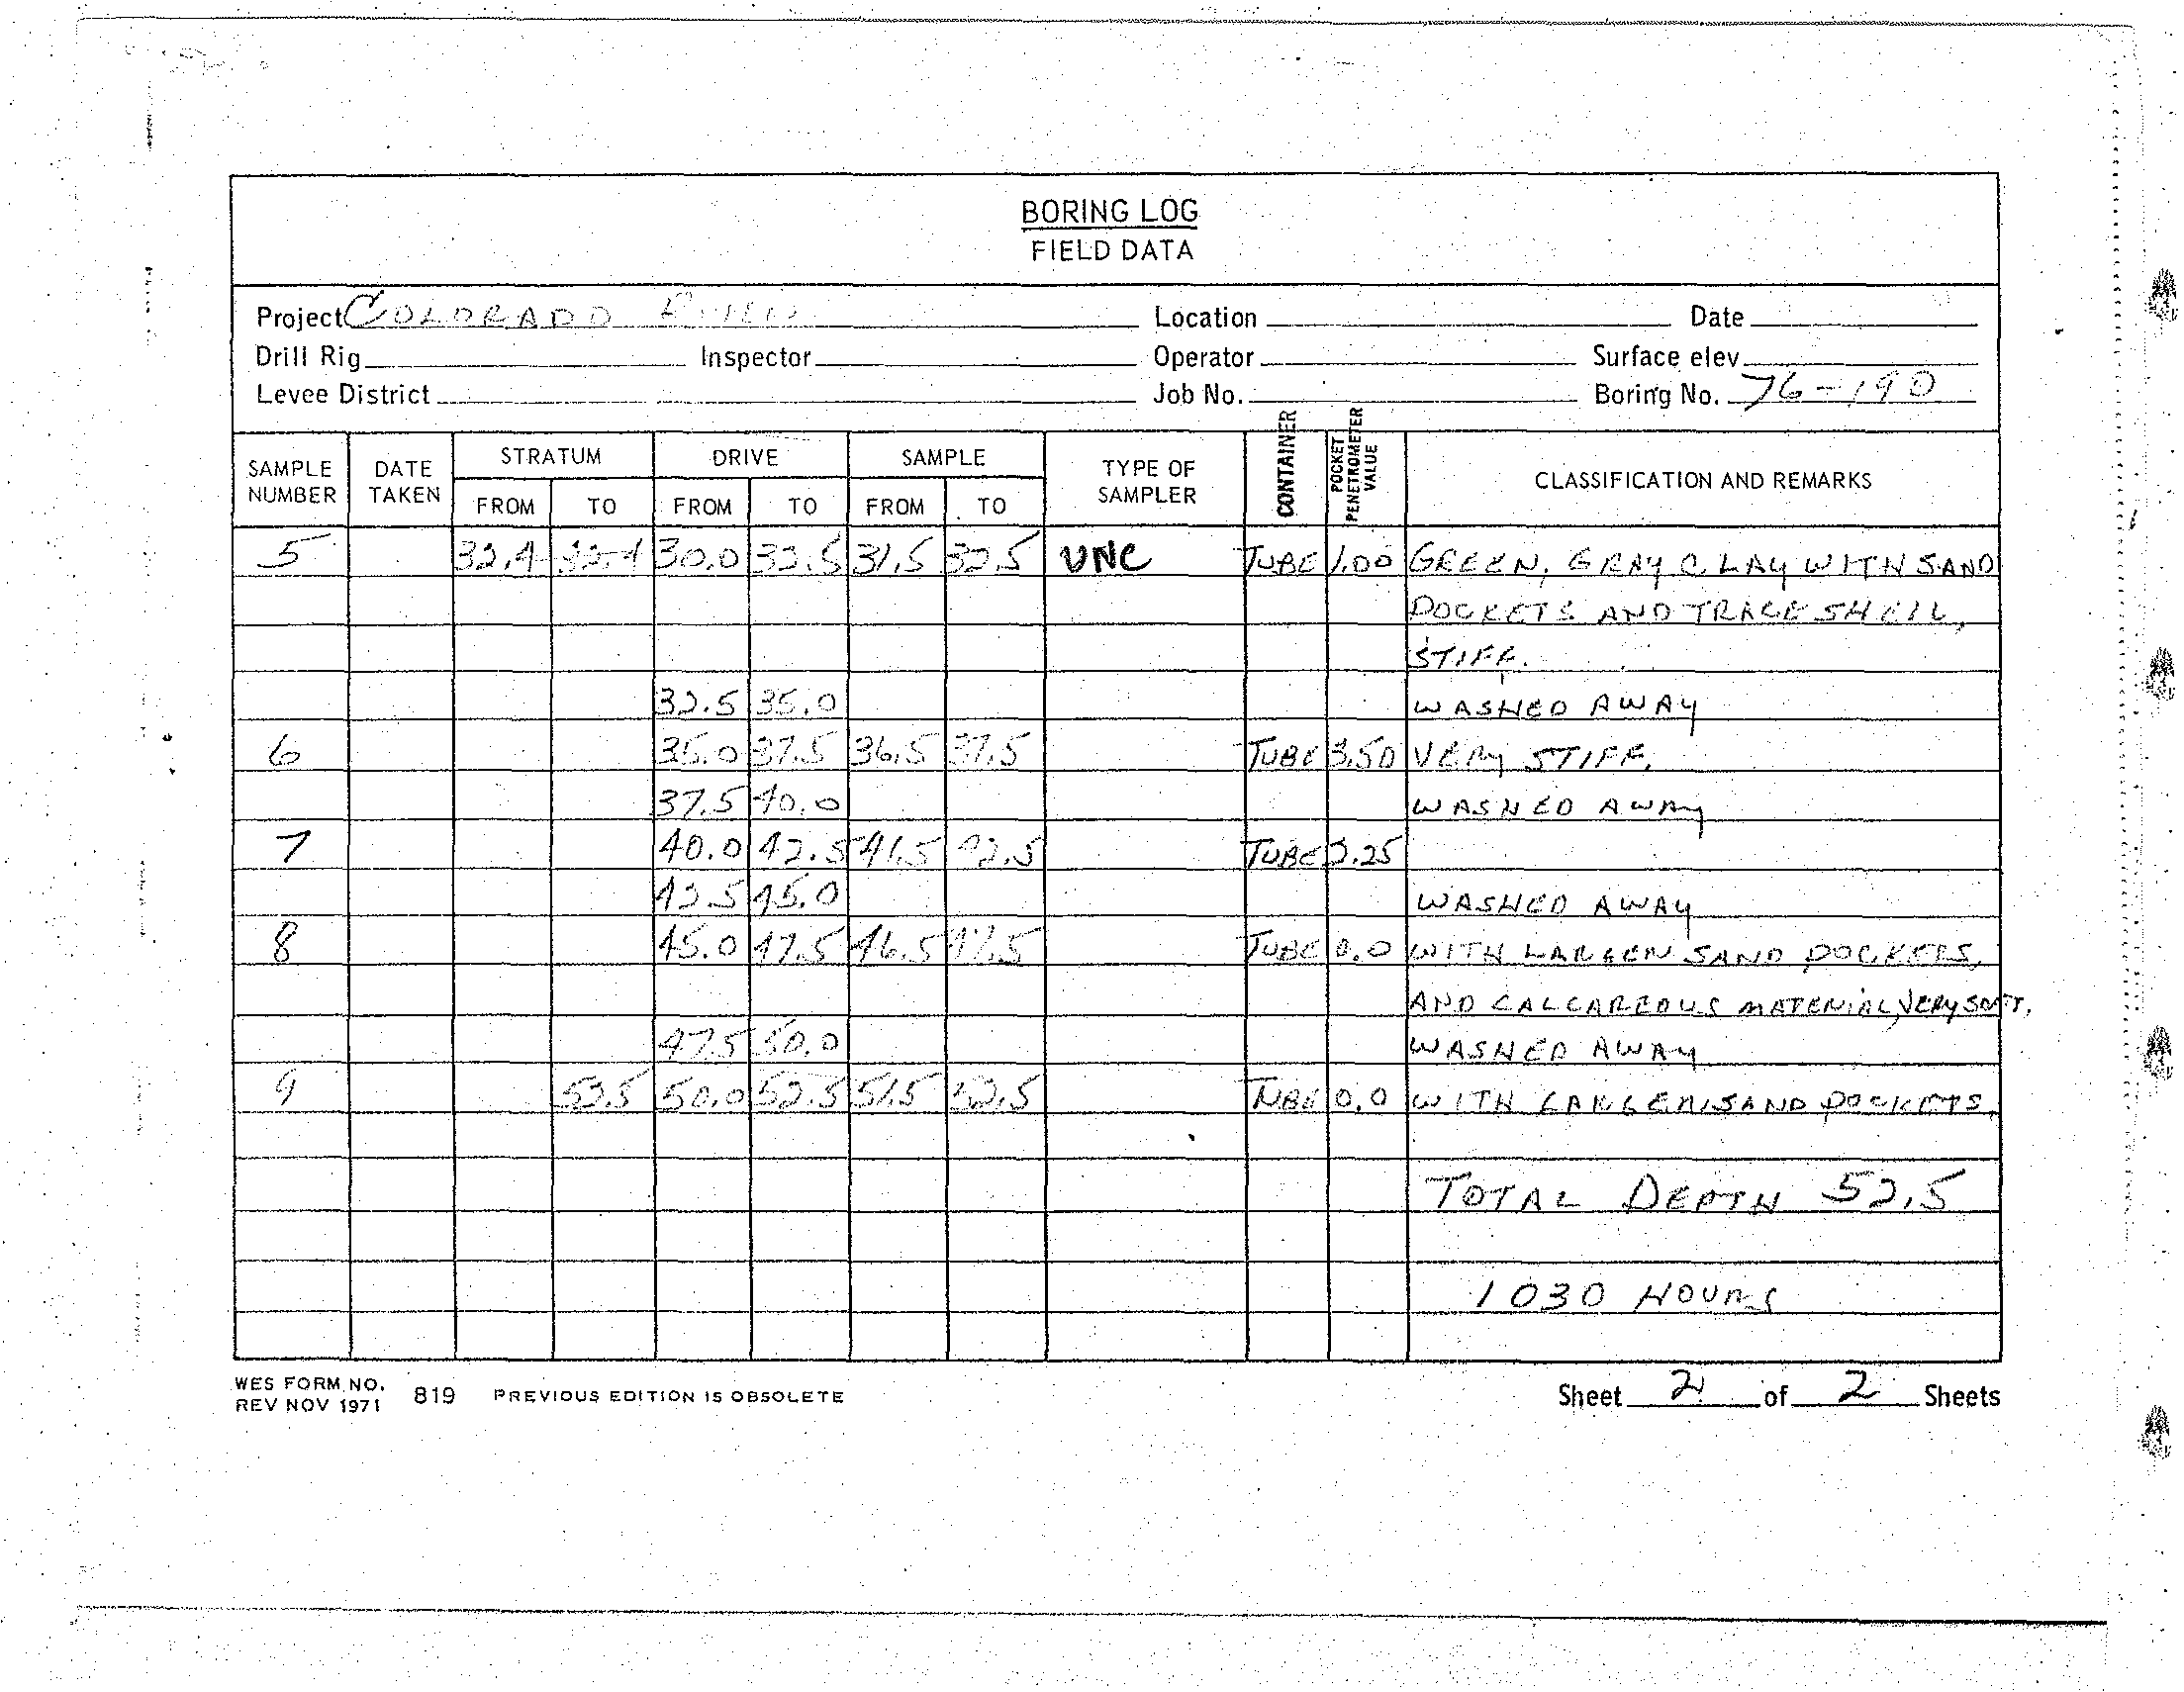 BORING LOG
FIELD DATA
Project COLORADO RIVER Location Date
Drill Rig Inspector Operator Surface elev.
Levee District Job No. Boring No. 76-190
SAMPLE NUMBER DATE TAKEN STRATUM FROM TO DRIVE FROM TO SAMPLE FROM TO TYPE OF SAMPLER CONTAINER POCKET PENETROMETER VALUE CLASSIFICATION AND REMARKS
5 32.4 30.0 32.5 31.5 32.5 UNC TUBE 1.00 GREEN, GRAY CLAY WITH SAND
POCKETS AND TRACE SHELL,
STIFF.
32.5 35.0 WASHED AWAY
6 35.0 37.5 36.5 37.5 TUBE 3.50 VERY STIFF.
37.5 40.0 WASHED AWAY
7 40.0 42.5 41.5 42.5 TUBE 2.25
42.5 45.0 WASHED AWAY
8 45.0 47.5 46.5 47.5 TUBE 0.0 WITH LARGER SAND POCKETS,
AND CALCAREOUS MATERIAL, VERY SOFT.
47.5 50.0 WASHED AWAY
9 52.5 50.0 52.5 51.5 52.5 TUBE 0.0 WITH LARGER SAND POCKETS.
TOTAL DEPTH 52.5
1030 HOURS
WES FORM NO. 819 PREVIOUS EDITION IS OBSOLETE
REV NOV 1971
Sheet 2 of 2 Sheets